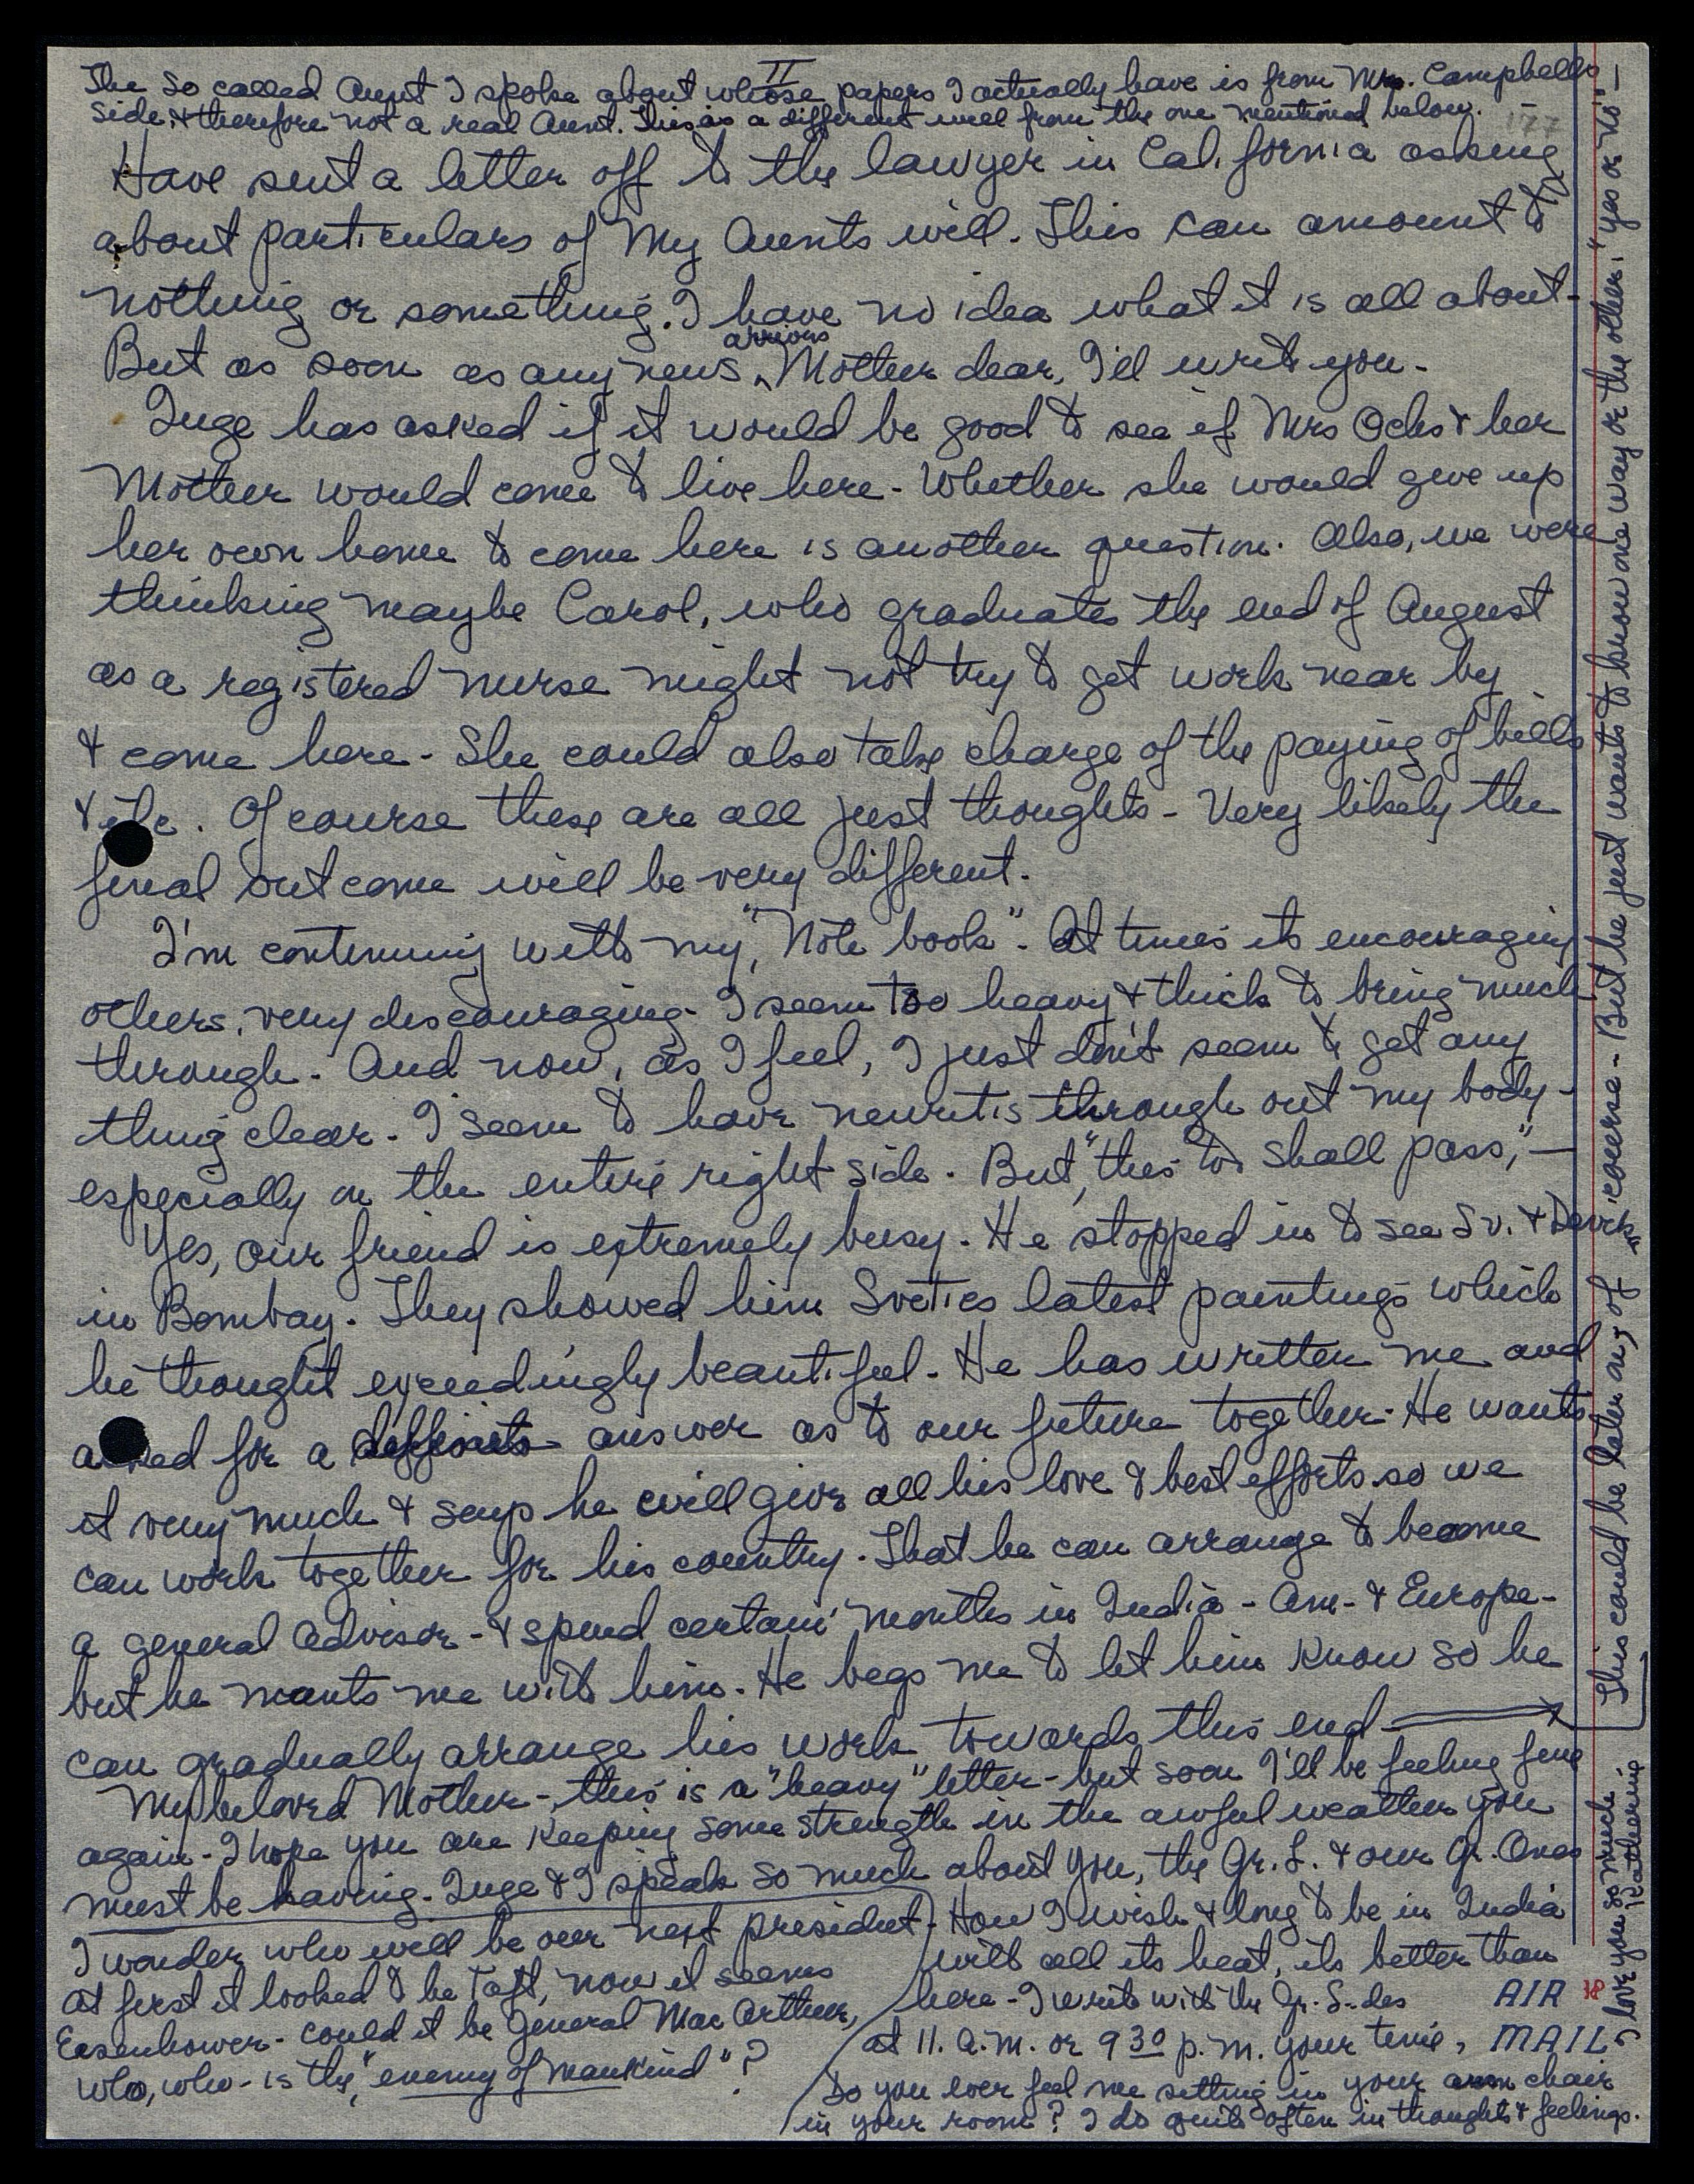 II
The so called Aunt I spoke about whose papers I actually have is from Mrs. Campbells
side, & therefore not a real Aunt. This is a different will from the one mentioned below.
177
Have sent a letter off to the lawyer in California asking
about particulars of My Aunts will. This can amount to
nothing or something. I have no idea what it is all about-
But as soon as any news arrives Mother dear, I'll write you.
Inge has asked if it would be good to see if Mrs Ochs & her
Mother would come to live here - Whether she would give up
her own home to come here is another question. Also, we were
thinking maybe Carol, who graduates the end of August
as a registered nurse might not try to get work near by
& come here - She could also take charge of the paying of bills
& etc. Of course these are all just thoughts - Very likely the
final outcome will be very different.
I'm continuing with my, "Note book". At times its encouraging
others, very discouraging. I seem too heavy & thick to bring much
through. And now, as I feel, I just don't seem to get any
thing clear. I seem to have neuritis through out my body-
especially on the entire right side. But, "this too shall pass," —
Yes, our friend is extremely busy. He stopped in to see Sv. & Devick
in Bombay. They showed him Svetics latest paintings which
he thought exceedingly beautiful. He has written me and
asked for a answer as to our future together. He wants
it very much & says he will give all his love & best efforts so we
can work together for his country. That he can arrange to become
a general advisor - & spend certain months in India - Am. & Europe-
but he wants me with him. He begs me to let him know so he
can gradually arrange his work towards this end
This could be later on, of course - But he just wants to know one way or the other. "yes or no" —
My beloved Mother - this is a "heavy" letter - but soon I'll be feeling fine
again - I hope you are keeping some strength in the awful weather you
must be having. Inge & I speak so much about you, the Gr. L. & our Gr. Ones
How I wish & long to be in India
with all its heat, its better than
here - I write with the Gr. S. des
at 11. a.m. or 9 30 p.m. your time,
Do you ever feel me sitting in your arm chair
in your room? I do quite often in thoughts & feelings.
I wonder who will be our next president.
At first it looked to be Taft, now it seems
Eisenhower - could it be General Mac Arthur,
who, who - is the, "enemy of mankind"?
AIR
MAIL
I love you so much.
Katherine